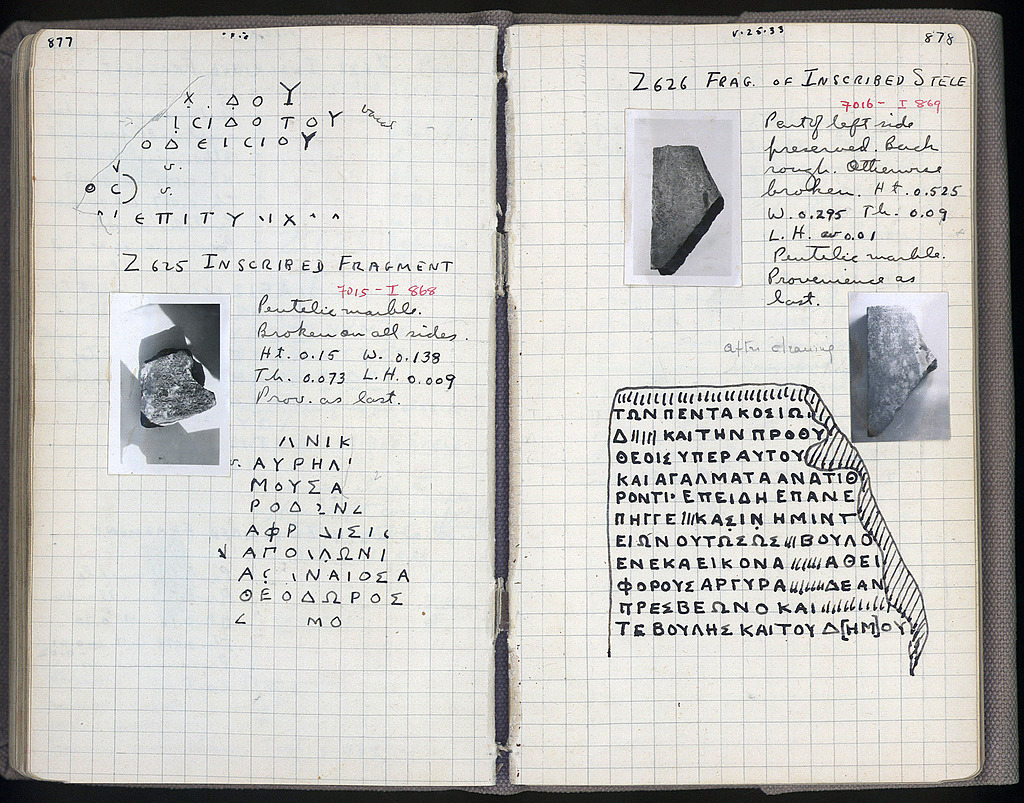 877
Χ . Δ Ο Υ
Ι C Ι Δ Ο Τ Ο Υ vacat
Ο Δ Ε Ι C Ι Ο Υ
v.
Ο C v.
Ε Π Ι Τ Υ Ι Χ
Z 625 INSCRIBED FRAGMENT
7015 - I 868
Pentelic marble.
Broken on all sides.
Ht. 0.15 W. 0.138
Th. 0.073 L.H. 0.009
Prov. as last.
Λ Ν Ι Κ
v. Α Υ Ρ Η Λ Ι
Μ Ο Υ Σ Α
Ρ Ο Δ Ν
Α Φ Ρ Ι Σ Ι
Α Π Ο Ι Λ Ω Ν Ι
Α Ϛ Ι Ν Α Ι Ο Σ Α
Θ Ε Ο Δ Ω Ρ Ο Σ
Μ Ο
V·25·33
878
Z 626 FRAG. OF INSCRIBED STELE
7016 - I 869
Part of left side
preserved. Back
rough. Otherwise
broken. Ht. 0.525
W. 0.295 Th. 0.09
L.H. av 0.01
Pentelic marble.
Provenience as
last.
after cleaning
ΤΩΝ ΠΕΝΤΑΚΟΣΙΩ
Δ ΚΑΙ ΤΗΝ ΠΡΟΘΥ
ΘΕΟΙΣ ΥΠΕΡ ΑΥΤΟΥ
ΚΑΙ ΑΓΑΛΜΑΤΑ ΑΝΑΤΙΘ
ΡΟΝΤΙ· ΕΠΕΙΔΗ ΕΠΑΝΕ
ΠΗΓΓΕ ΚΑΣΙΝ ΗΜΙΝ Τ
ΕΙΩΝ ΟΥΤΩΣ ΩΣ ΒΟΥΛΟ
ΕΝΕΚΑ ΕΙΚΟΝΑ ΑΘΕΙ
ΦΟΡΟΥΣ ΑΡΓΥΡΑ ΔΕ ΑΝ
ΠΡΕΣΒΕΩΝ Ο ΚΑΙ
ΤΕ ΒΟΥΛΗΣ ΚΑΙ ΤΟΥ Δ[ΗΜ]ΟΥ